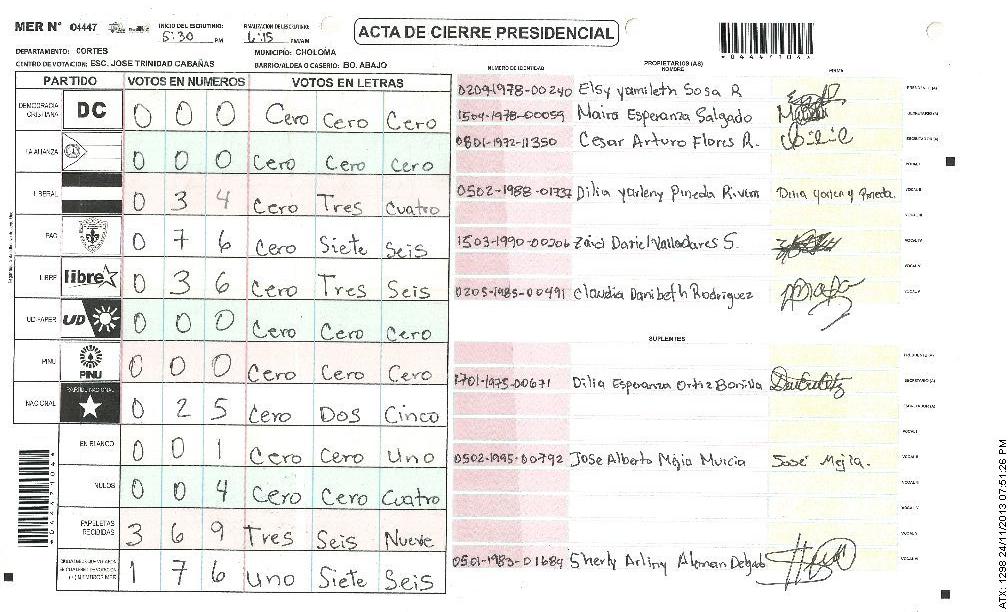 MER Nº 04447
INICIO DEL ESCRUTINIO: 5:30 PM
FINALIZACION DEL ESCRUTINIO: 6:15 PM/AM
ACTA DE CIERRE PRESIDENCIAL
DEPARTAMENTO: CORTES
MUNICIPIO: CHOLOMA
CENTRO DE VOTACION: ESC. JOSE TRINIDAD CABAÑAS
BARRIO/ALDEA O CASERIO: BO. ABAJO
PARTIDO VOTOS EN NUMEROS VOTOS EN LETRAS
DEMOCRACIA CRISTIANA DC 0 0 0 Cero Cero Cero
LA ALIANZA 0 0 0 Cero Cero Cero
LIBERAL 0 3 4 Cero Tres Cuatro
PAC 0 7 6 Cero Siete Seis
LIBRE libre 0 3 6 Cero Tres Seis
UD-FAPER UD 0 0 0 Cero Cero Cero
PINU PINU 0 0 0 Cero Cero Cero
NACIONAL PARTIDO NACIONAL 0 2 5 Cero Dos Cinco
EN BLANCO 0 0 1 Cero Cero Uno
NULOS 0 0 4 Cero Cero Cuatro
PAPELETAS RECIBIDAS 3 6 9 Tres Seis Nueve
1 7 6 Uno Siete Seis
NUMERO DE IDENTIDAD
PROPIETARIOS (AS)
NOMBRE
FIRMA
0209-1978-00240 Elsy yamileth Sosa R
1504-1978-00059 Maira Esperanza Salgado
0801-1972-11350 Cesar Arturo Flores R.
0502-1988-01737 Dilia yarleny Pineda Rivera Dilia yarleny Pineda.
1503-1990-00206 Dariel Valladares S.
0205-1985-00491 Claudia Danibeth Rodriguez
SUPLENTES
1701-1975-00671 Dilia Esperanza Ortiz Bonilla
0502-1995-00792 Jose Alberto Mejia Murcia José Mejía.
0501-1983-01684 Sherly Arliny Aleman Delgado
ATX: 1298 24/11/2013 07:51:26 PM